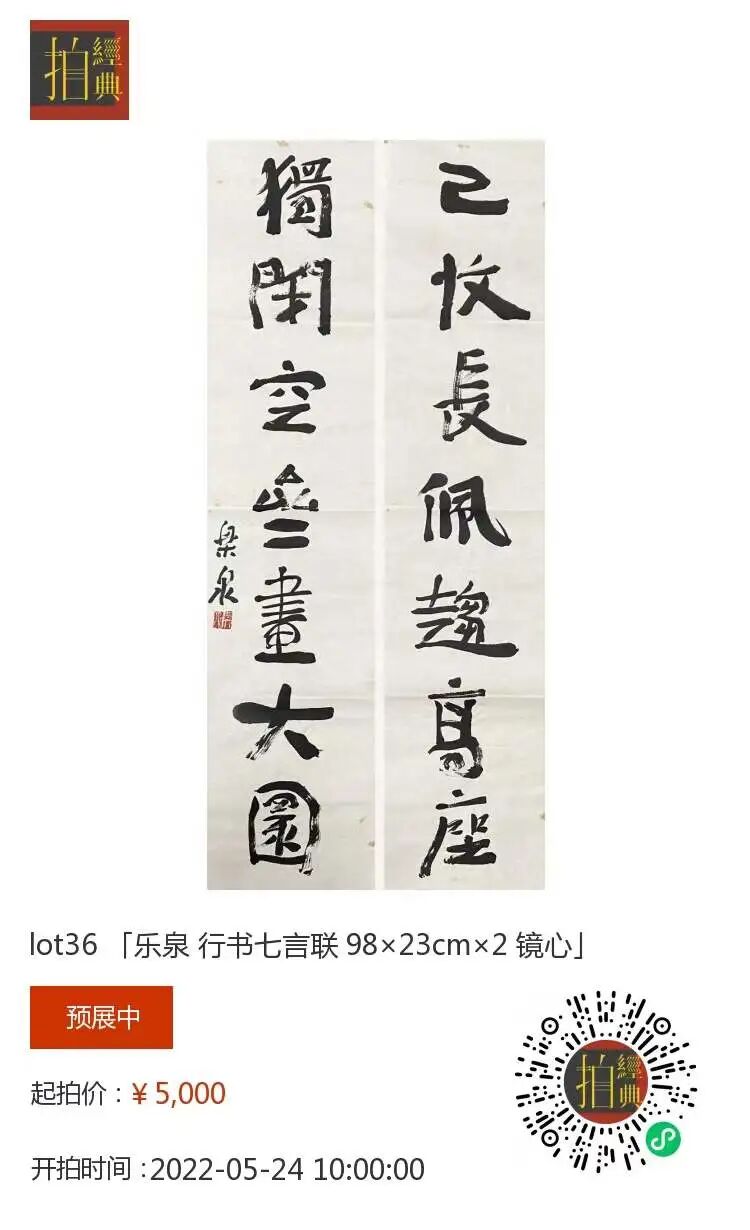 拍經典
已收長佩趨高座
獨閉空堂畫大圜
樂泉
lot36 「乐泉 行书七言联 98×23cm×2 镜心」
预展中
起拍价：¥ 5,000
开拍时间：2022-05-24 10:00:00
拍經典